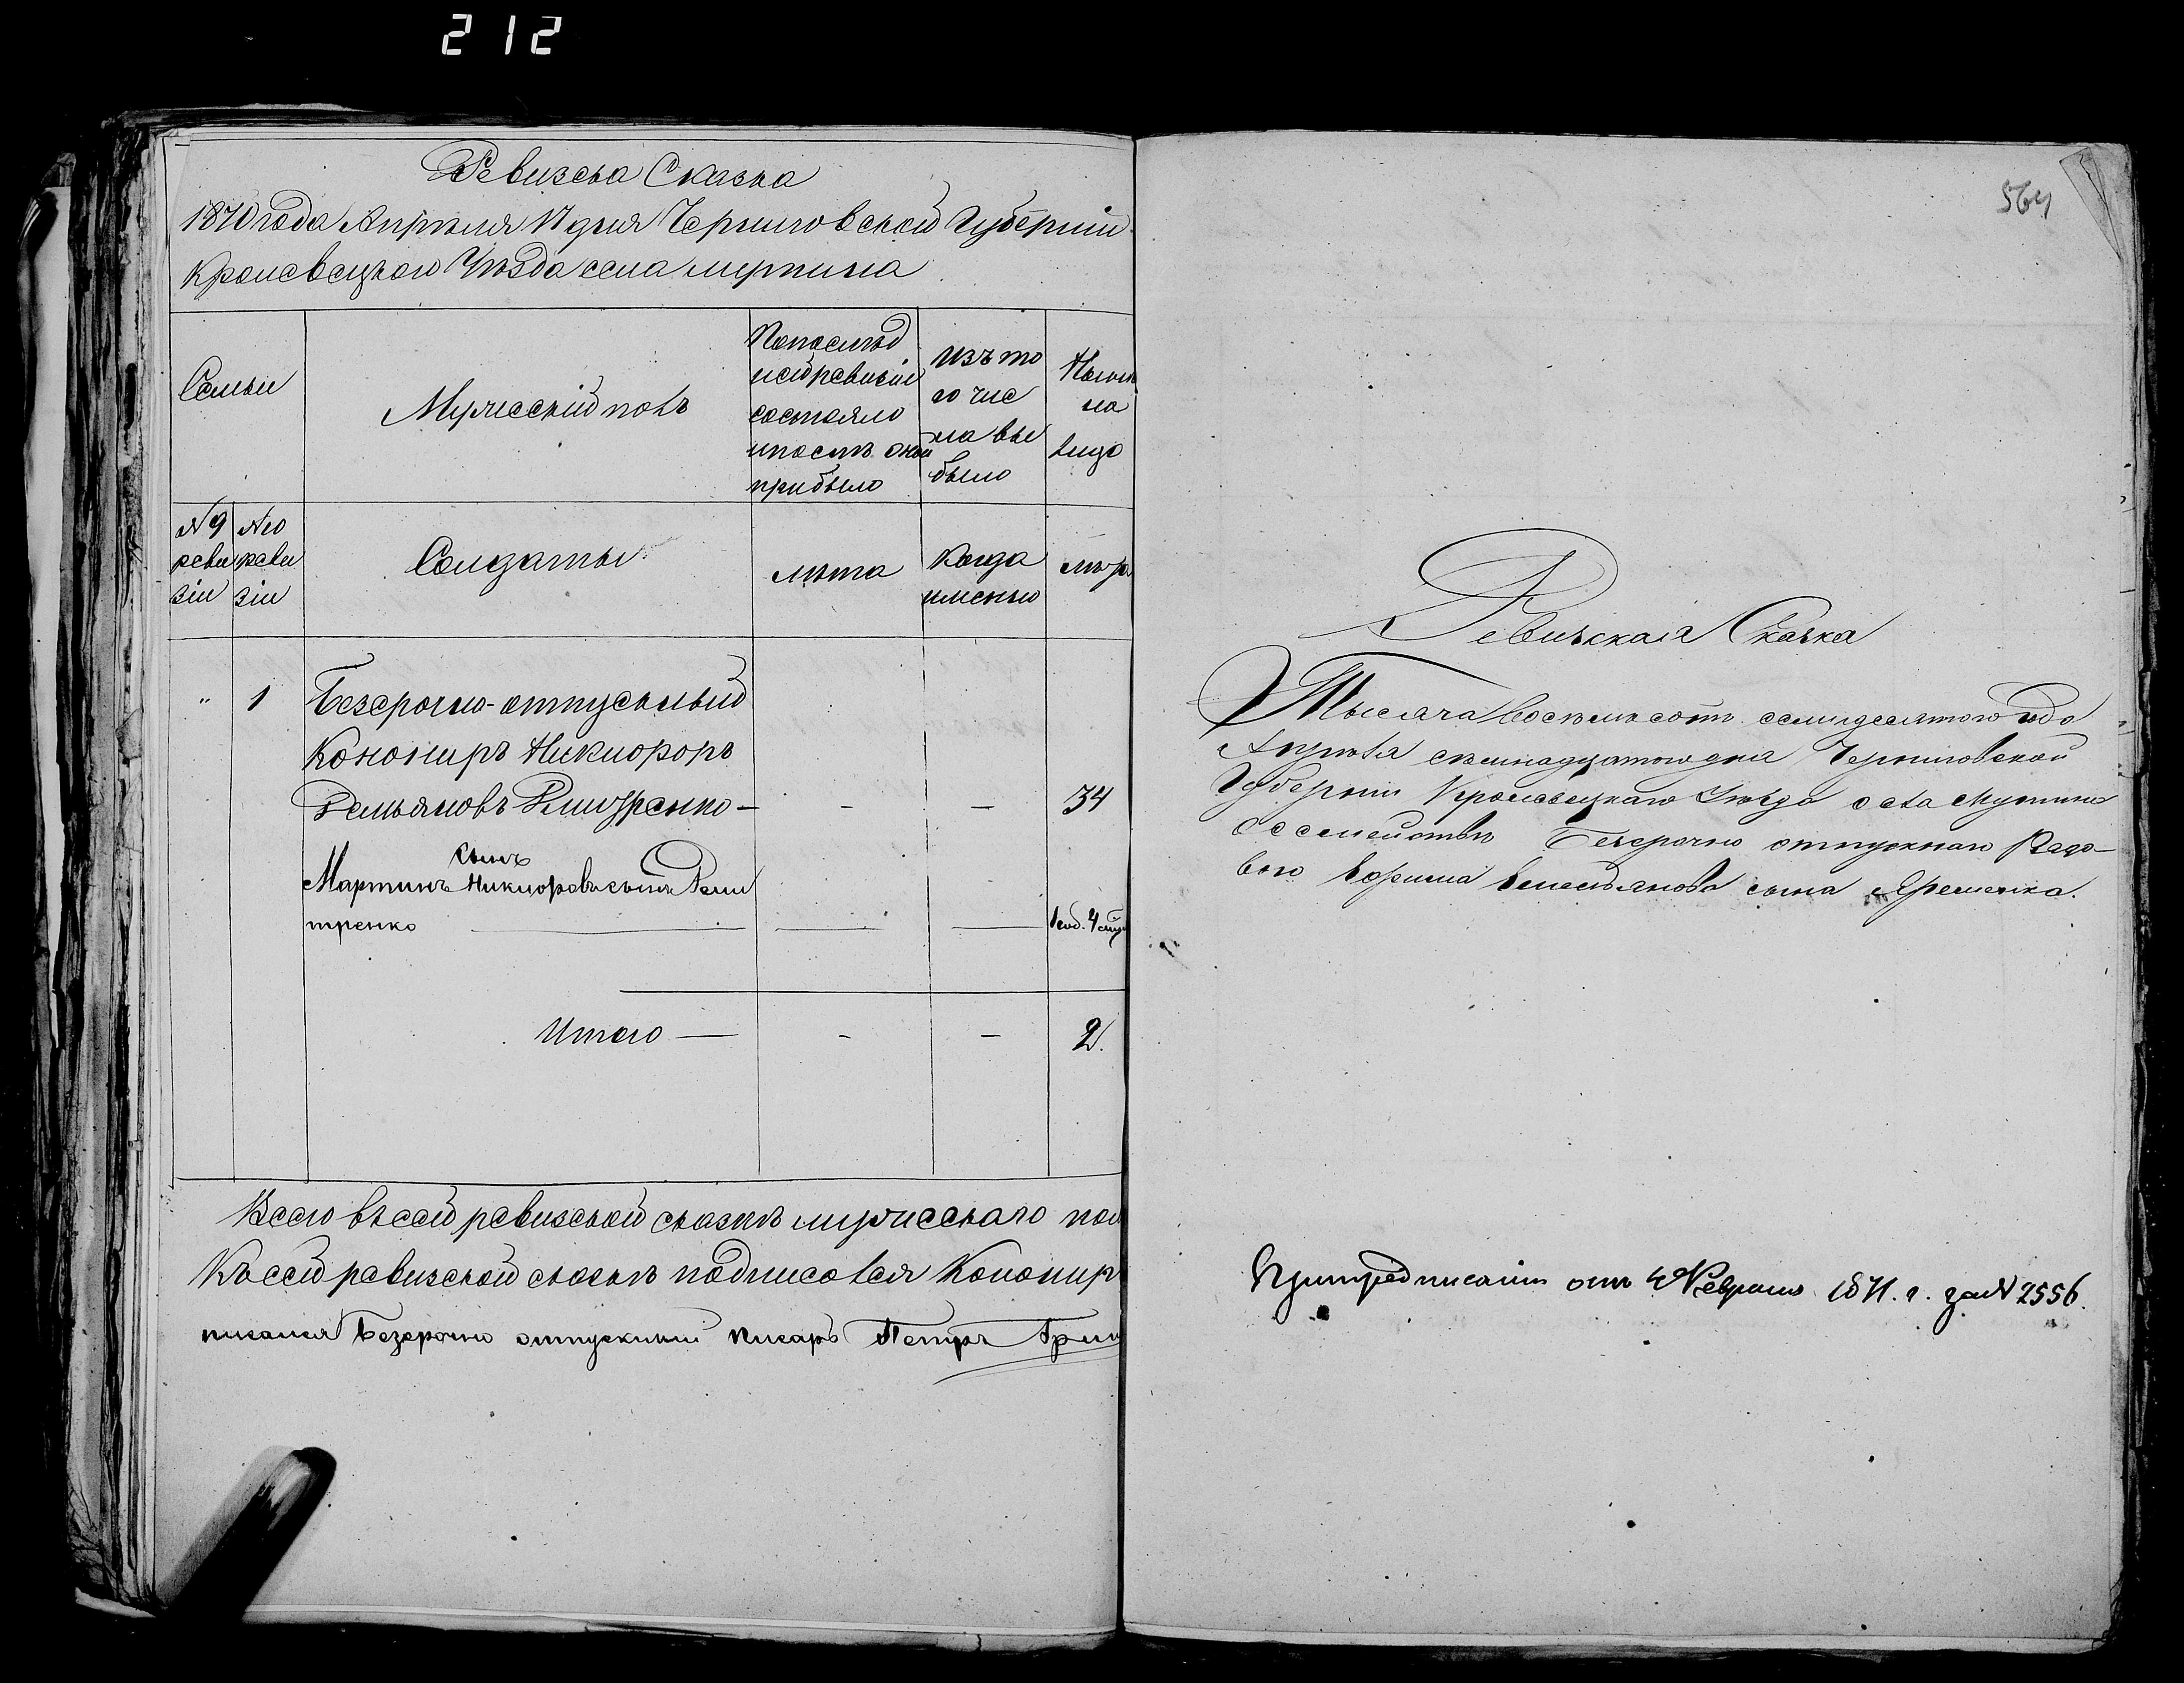 212
Ревизска Сказка
1870 года Апреля 17 дня Черниговской Губерніи
Кролевецкого Уезда села
Семьи
Мужеский полъ
Попослед
ней ревизіи
состояло
ипосле оной
прибыло
Изъ то
го чис
ла вы
было
Ныне
на
лицо
№ 9
реви
зіи
№ 10
реви
зіи
Солдаты
лета
Когда
имянно
лета
" 1 Безсрочно-отпускный
Конониръ Никифоръ
Демьяновъ Дмитренко — - — 34
сынъ
Мартинъ Никифоровъ сынъ Дми
тренко — — — 1 год. 4 мец
Итого — - — 2.
Всего въ сей ревизской сказке мужескаго пол
Къ сей ревизской сказке подписался Кононир
писался Безсрочно отпускный писаръ Петръ Гри
564
Ревизская Сказка
Тысяча восемьсотъ семидесятого года
Апреля семнадцатого дня Черниговской
Губерніи Кролевецкаго Уезда села Мутина
о семействе Безсрочно отпускнаго Рядо-
вого сына Яременка.
При предписаніи отъ 4 Февраля 1871. г. за № 2556.